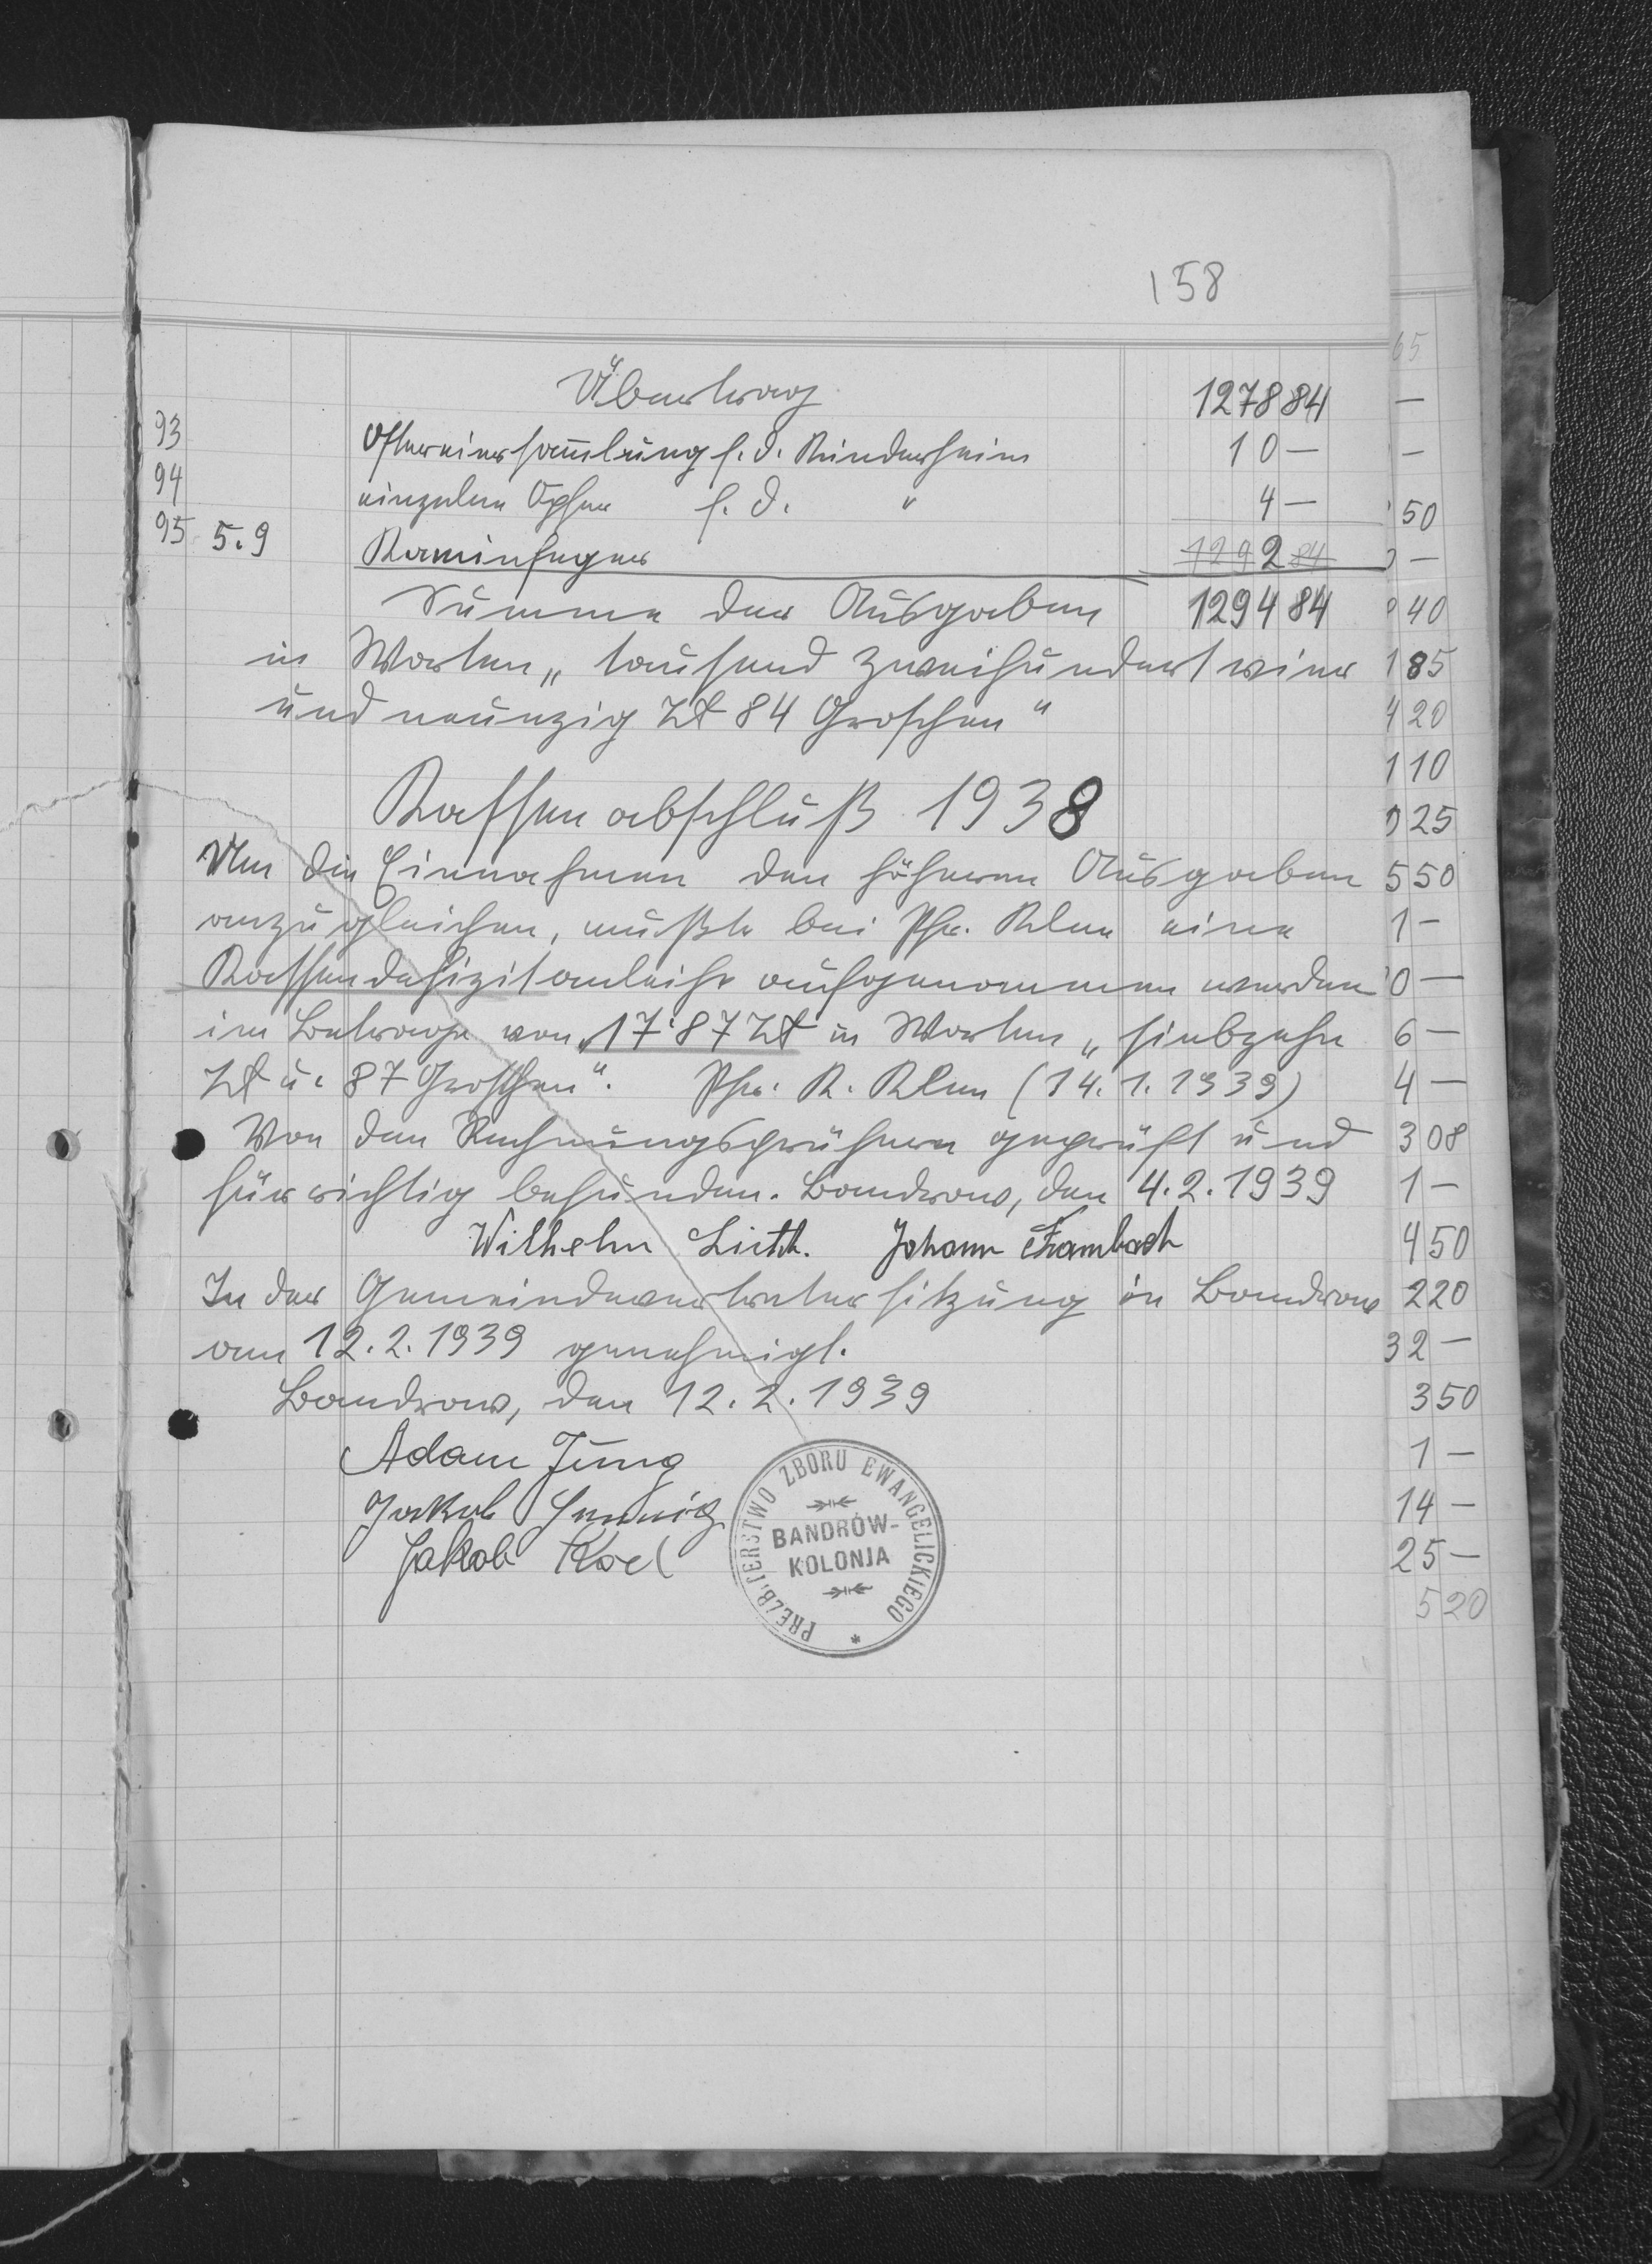 158
Übertrag 1278 84
93 Ostereiersammlung f. d. Kinderheim 10 —
94 einzelne Opfer f. d. " 4 —
95 5.9 Kaminfeger 2
Summe der Ausgaben 1294 84
in Worten „tausend zweihundert vier
und neunzig Zł 84 Groschen"
Kassenabschluß 1938
Um die Einnahmen den höheren Ausgaben
anzugleichen, mußte bei Pfr. Klee eine
Kassendefizitanleihe aufgenommen werden
im Betrage von 17'87 Zł in Worten „siebzehn
Zł u. 87 Groschen". Pfr. R. Klee (14.1.1939)
Von den Rechnungsprüfern geprüft und
für richtig befunden. Bandrow, den 4.2.1939
Wilhelm Johann
In der Gemeindevertretersitzung in Bandrow
am 12.2.1939 genehmigt.
Bandrow, den 12.2.1939
Adam Jung
Jakob
Jakob
PREZBITERSTWO ZBORU EWANGELICKIEGO *
BANDRÓW-
KOLONJA
65
—
—
50
—
40
185
420
110
25
550
1 —
0 —
6 —
4 —
308
1 —
450
220
32 —
350
1 —
14 —
25 —
520